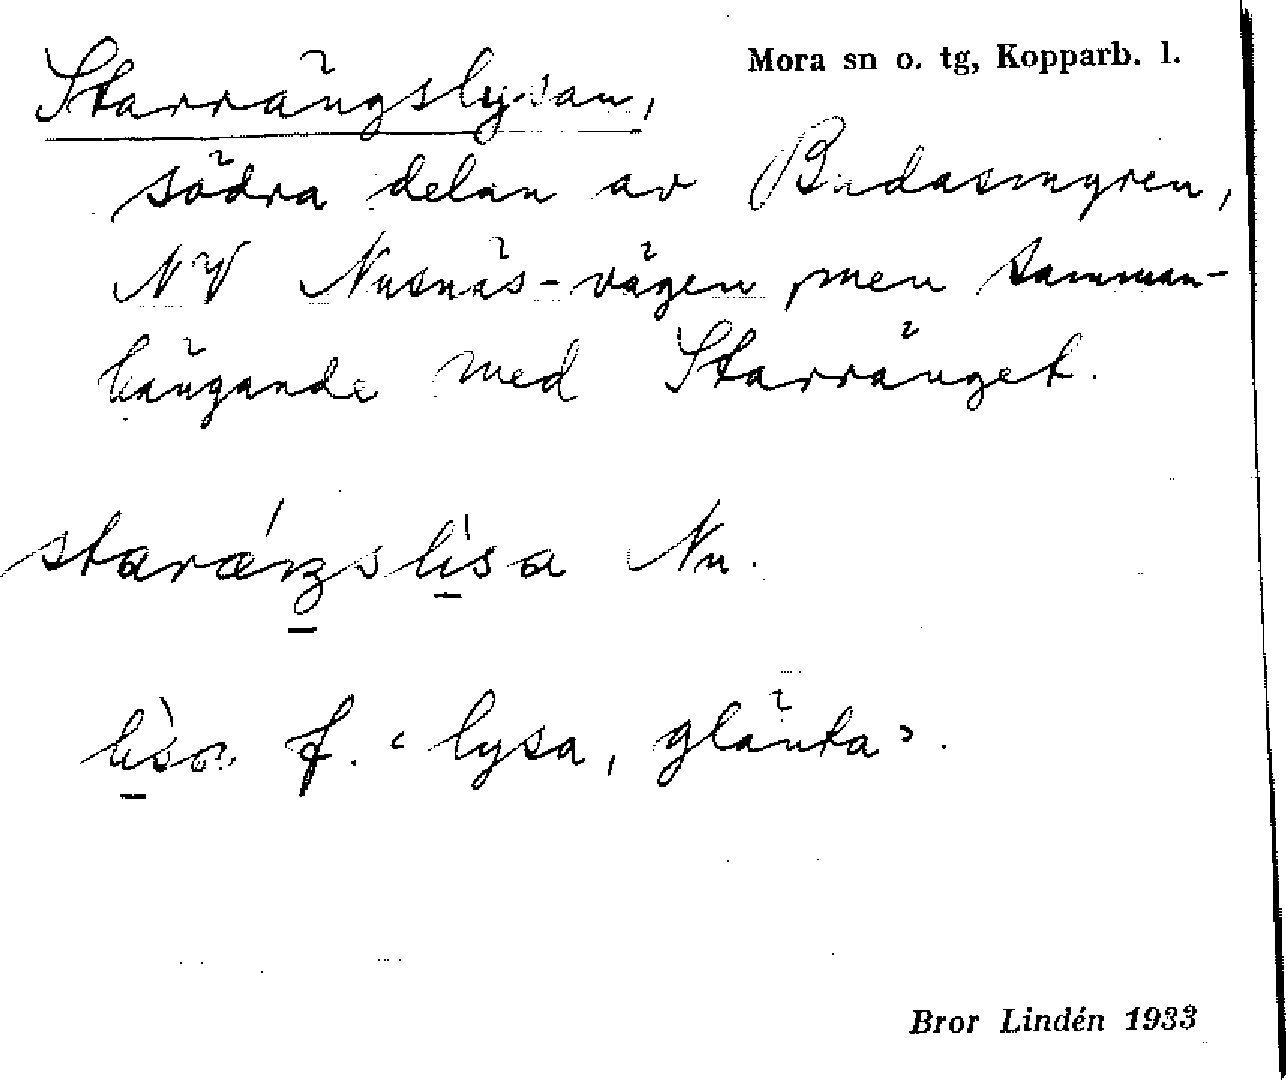 Mora sn o. tg, Kopparb. l.
Starrängslysan,
södra delen av Budasmyren,
NV Nusnäs-vägen men samman-
hängande med Starränget.
starǽŋslìsa Nu.
lìsa f. ‹ lysa, glänta ›.
Bror Lindén 1933